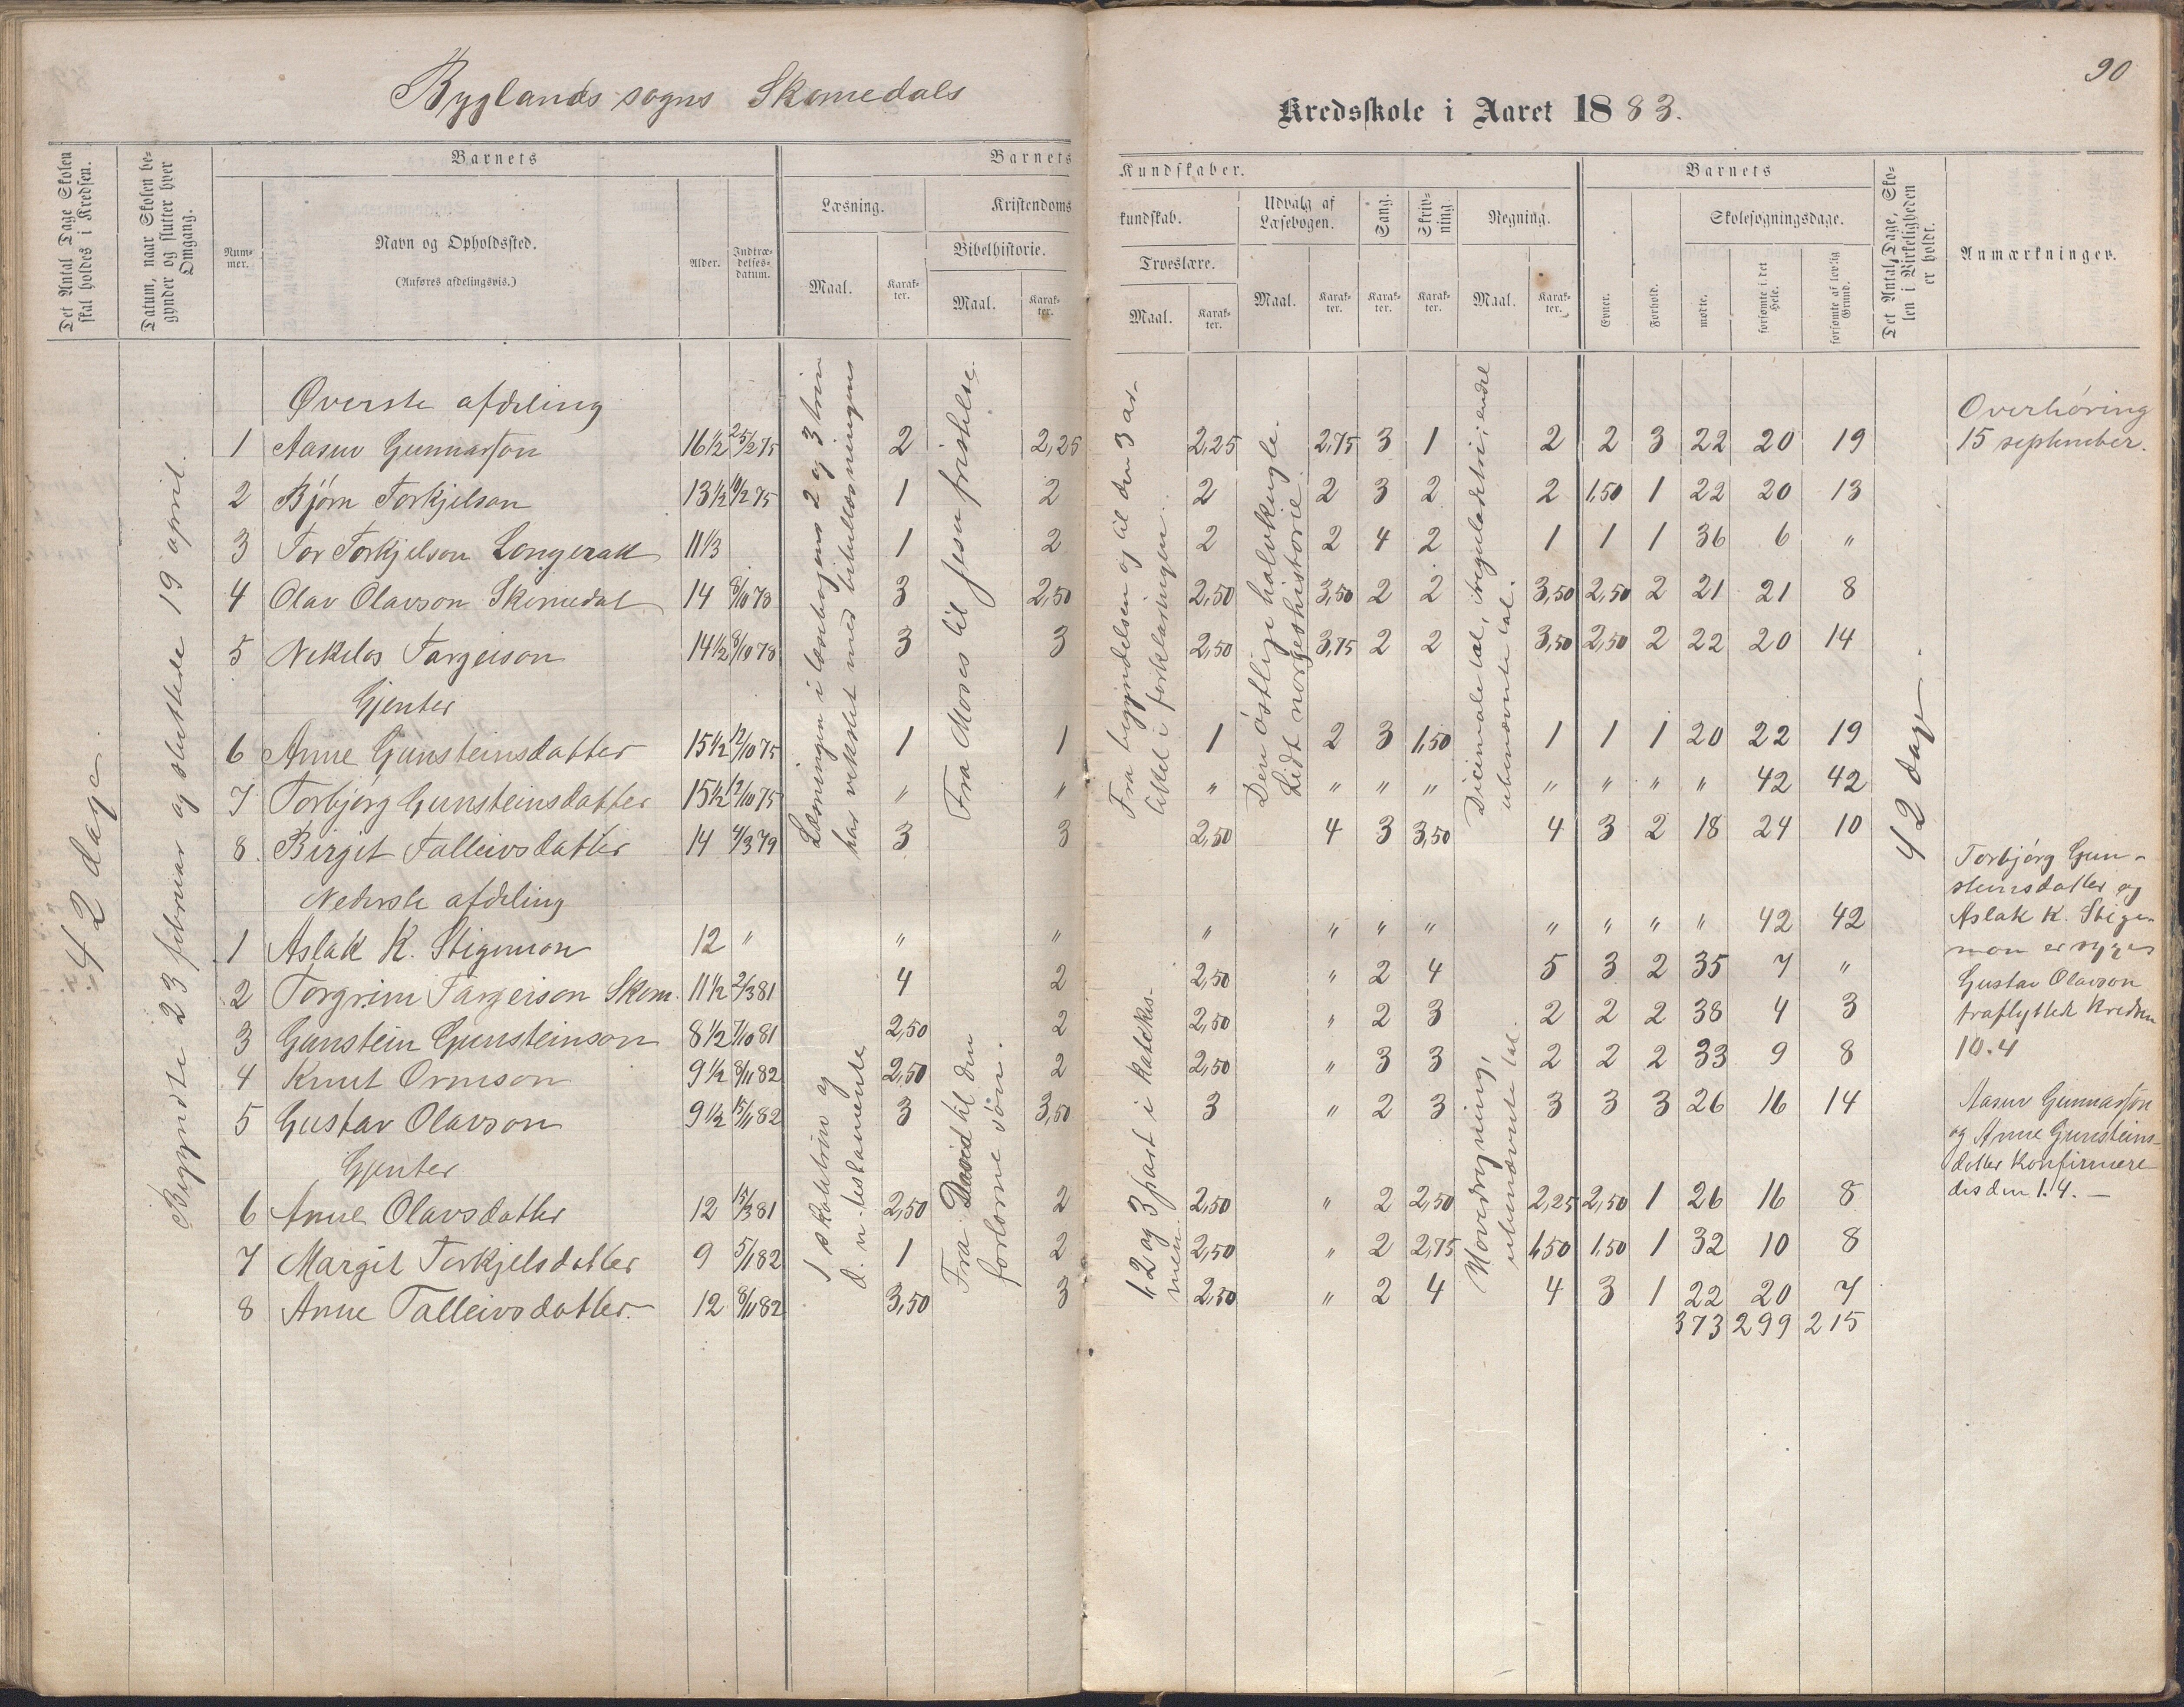 90
Byglands sogns Skomedals Kredsskole i Aaret 1883.
Det Antal Dage Skolen skal holdes i Kredsen.
Datum, naar Skolen begynder og slutter hver Omgang.
Barnets
Nummer.
Navn og Opholdssted.
(Anføres afdelingsvis.)
Alder.
Indtrædelsesdatum.
Barnets Kundskaber.
Læsning.
Maal.
Karakter.
Kristendomskundskab.
Bibelhistorie.
Maal.
Karakter.
Troeslære.
Maal.
Karakter.
Udvalg af Læsebogen.
Maal.
Karakter.
Sang.
Karakter.
Skrivning.
Karakter.
Regning.
Maal.
Karakter.
Barnets
Evner.
Forhold.
Skolesøgningsdage.
mødte.
forsømte i det Hele.
forsømte af lovlig Grund.
Det Antal Dage, Skolen i Virkeligheden er holdt.
Anmærkninger.
42 dage.
Begyndte 23 februar og sluttede 19 april.
Læsningen i læsebogens 2 og 3 trin
har vekslet med bibellæsningens
Fra Moses til Jesu fristelse.
Fra begyndelsen og til den 3 ar-
tikkel i forklaringen.
Den østlige halvkugle.
Lidt norgeshistorie.
Decimale tal, reguladetri i endel
ubenævnte tal.
42 dage.
Øverste afdeling
1 Aasuv Gunnarson 16 1/2 25/2 75 2 2,25 2,25 2,75 3 1 2 2 3 22 20 19
2 Bjørn Torkjelson 13 1/2 10/2 75 1 2 2 2 3 2 2 1,50 1 22 20 13
3 Tor Torkjelson Longerak 11 1/3 1 2 2 2 4 2 1 1 1 36 6 "
4 Olav Olavson Skomedal 14 8/10 78 3 2,50 2,50 3,50 2 2 3,50 2,50 2 21 21 8
5 Nikolos Targeison 14 1/2 8/10 78 3 3 2,50 3,75 2 2 3,50 2,50 2 22 20 14
Gjenter
6 Anne Gunsteinsdatter 15 1/2 12/10 75 1 1 1 2 3 1,50 1 1 1 20 22 19
7 Torbjørg Gunsteinsdatter 15 1/2 12/10 75 " " " " " " " " " " 42 42
8. Birgit Talleivsdatter 14 4/3 79 3 3 2,50 4 3 3,50 4 3 2 18 24 10
Nederste afdeling
1 skoletrin og
d. n. testamente
Fra David til den
forlorne søn.
1, 2 og 3 part i katekis-
men.
Hovedregning,
ubenævnte tal.
1 Aslak K. Stigemon 12 " " " " " " " " " " " 42 42
2 Torgrim Targeison Skom. 11 1/2 2/3 81 4 2 2,50 " 2 4 5 3 2 35 7 "
3 Gunstein Gunsteinson 8 1/2 7/10 81 2,50 2 2,50 " 2 3 2 2 2 38 4 3
4 Knut Ormson 9 1/2 8/11 82 2,50 2 2,50 " 3 3 2 2 2 33 9 8
5 Gustav Olavson 9 1/2 15/11 82 3 3,50 3 " 2 3 3 3 3 26 16 14
Gjenter
6 Anne Olavsdatter 12 15/3 81 2,50 2 2,50 " 2 2,50 2,25 2,50 1 26 16 8
7 Margit Torkjelsdatter 9 5/1 82 1 2 2,50 " 2 2,75 1,50 1,50 1 32 10 8
8 Anne Talleivsdatter. 12 8/11 82 3,50 3 2,50 " 2 4 4 3 1 22 20 7
373 299 215
Overhøring
15 september.
Torbjørg Gun-
steinsdatter og
Aslak K. Stige-
mon er syge
Gustav Olavson
fraflyttede Kredsen
10.4
Aasuv Gunnarson
og Anne Gunsteins-
datter Konfirmere-
des den 1.4. —